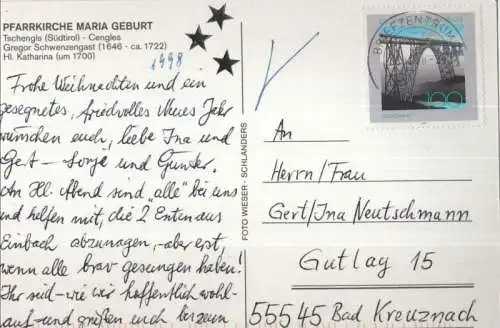 PFARRKIRCHE MARIA GEBURT
Tschengls (Südtirol) - Cengles
Gregor Schwenzengast (1646 - ca. 1722)
Hl. Katharina (um 1700)
1998
Frohe Weihnachten und ein
gesegnetes, friedvolles Neues Jahr
wünschen euch, liebe Ina und
Gert - und Gunter.
Am Hl. Abend sind "alle" bei uns
und helfen mit, die 2 Enten aus
Einbach abzunagen, - aber erst,
wenn alle brav gesungen haben!
Ihr seid - wie wir hoffentlich wohl-
auf - und grüßen euch bis zum
FOTO WIESER - SCHLANDERS
BRIEFZENTRUM
100
An
Herrn/Frau
Gert/Ina Neutschmann
Gutlay 15
55545 Bad Kreuznach